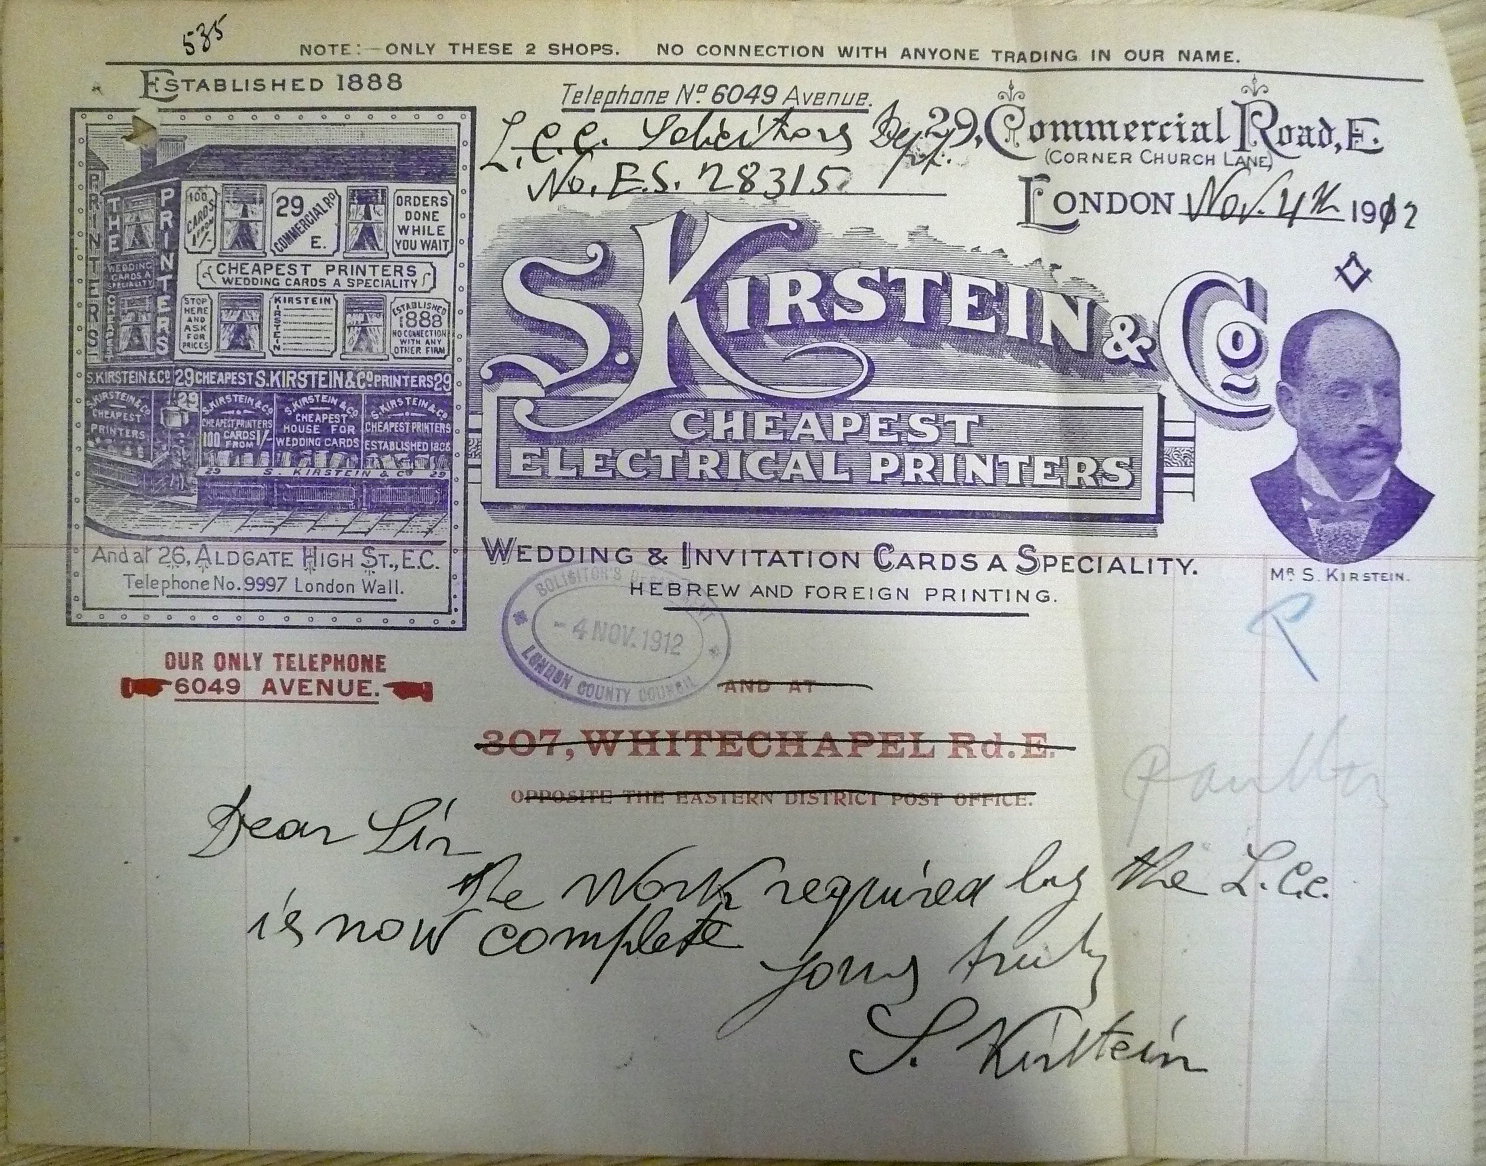 535
NOTE:—ONLY THESE 2 SHOPS. NO CONNECTION WITH ANYONE TRADING IN OUR NAME.
ESTABLISHED 1888
Telephone No 6049 Avenue.
L.C.C. Solicitors Dept.
No. E.S. 28315
29, Commercial Road, E.
(CORNER CHURCH LANE)
LONDON Nov. 4th 1912
PRINTERS
THE
WEDDING CARDS A SPECIALITY
PRINTERS
100 CARDS FROM 1/-
29 COMMERCIAL RD E.
ORDERS DONE WHILE YOU WAIT
CHEAPEST PRINTERS
WEDDING CARDS A SPECIALITY
STOP HERE AND ASK FOR PRICES
KIRSTEIN
ESTABLISHED 1888 NO CONNECTION WITH ANY OTHER FIRM
S. KIRSTEIN & Co 29 CHEAPEST S. KIRSTEIN & Co PRINTERS 29
S. KIRSTEIN & Co CHEAPEST PRINTERS
29
S. KIRSTEIN & Co CHEAPEST PRINTERS 100 CARDS FROM 1/-
S. KIRSTEIN & Co CHEAPEST HOUSE FOR WEDDING CARDS
S. KIRSTEIN & Co CHEAPEST PRINTERS ESTABLISHED 1888
29 S. KIRSTEIN & Co 29
And at 26, ALDGATE HIGH ST., E.C.
Telephone No. 9997 London Wall.
S. KIRSTEIN & Co
CHEAPEST
ELECTRICAL PRINTERS
WEDDING & INVITATION CARDS A SPECIALITY.
HEBREW AND FOREIGN PRINTING.
MR S. KIRSTEIN.
SOLICITOR'S DEPARTMENT
- 4 NOV. 1912
LONDON COUNTY COUNCIL
P
OUR ONLY TELEPHONE
6049 AVENUE.
AND AT
307, WHITECHAPEL Rd. E.
OPPOSITE THE EASTERN DISTRICT POST OFFICE.
Dear Sir
the Work required by the L.C.C.
is now complete
yours truly
S. Kirstein